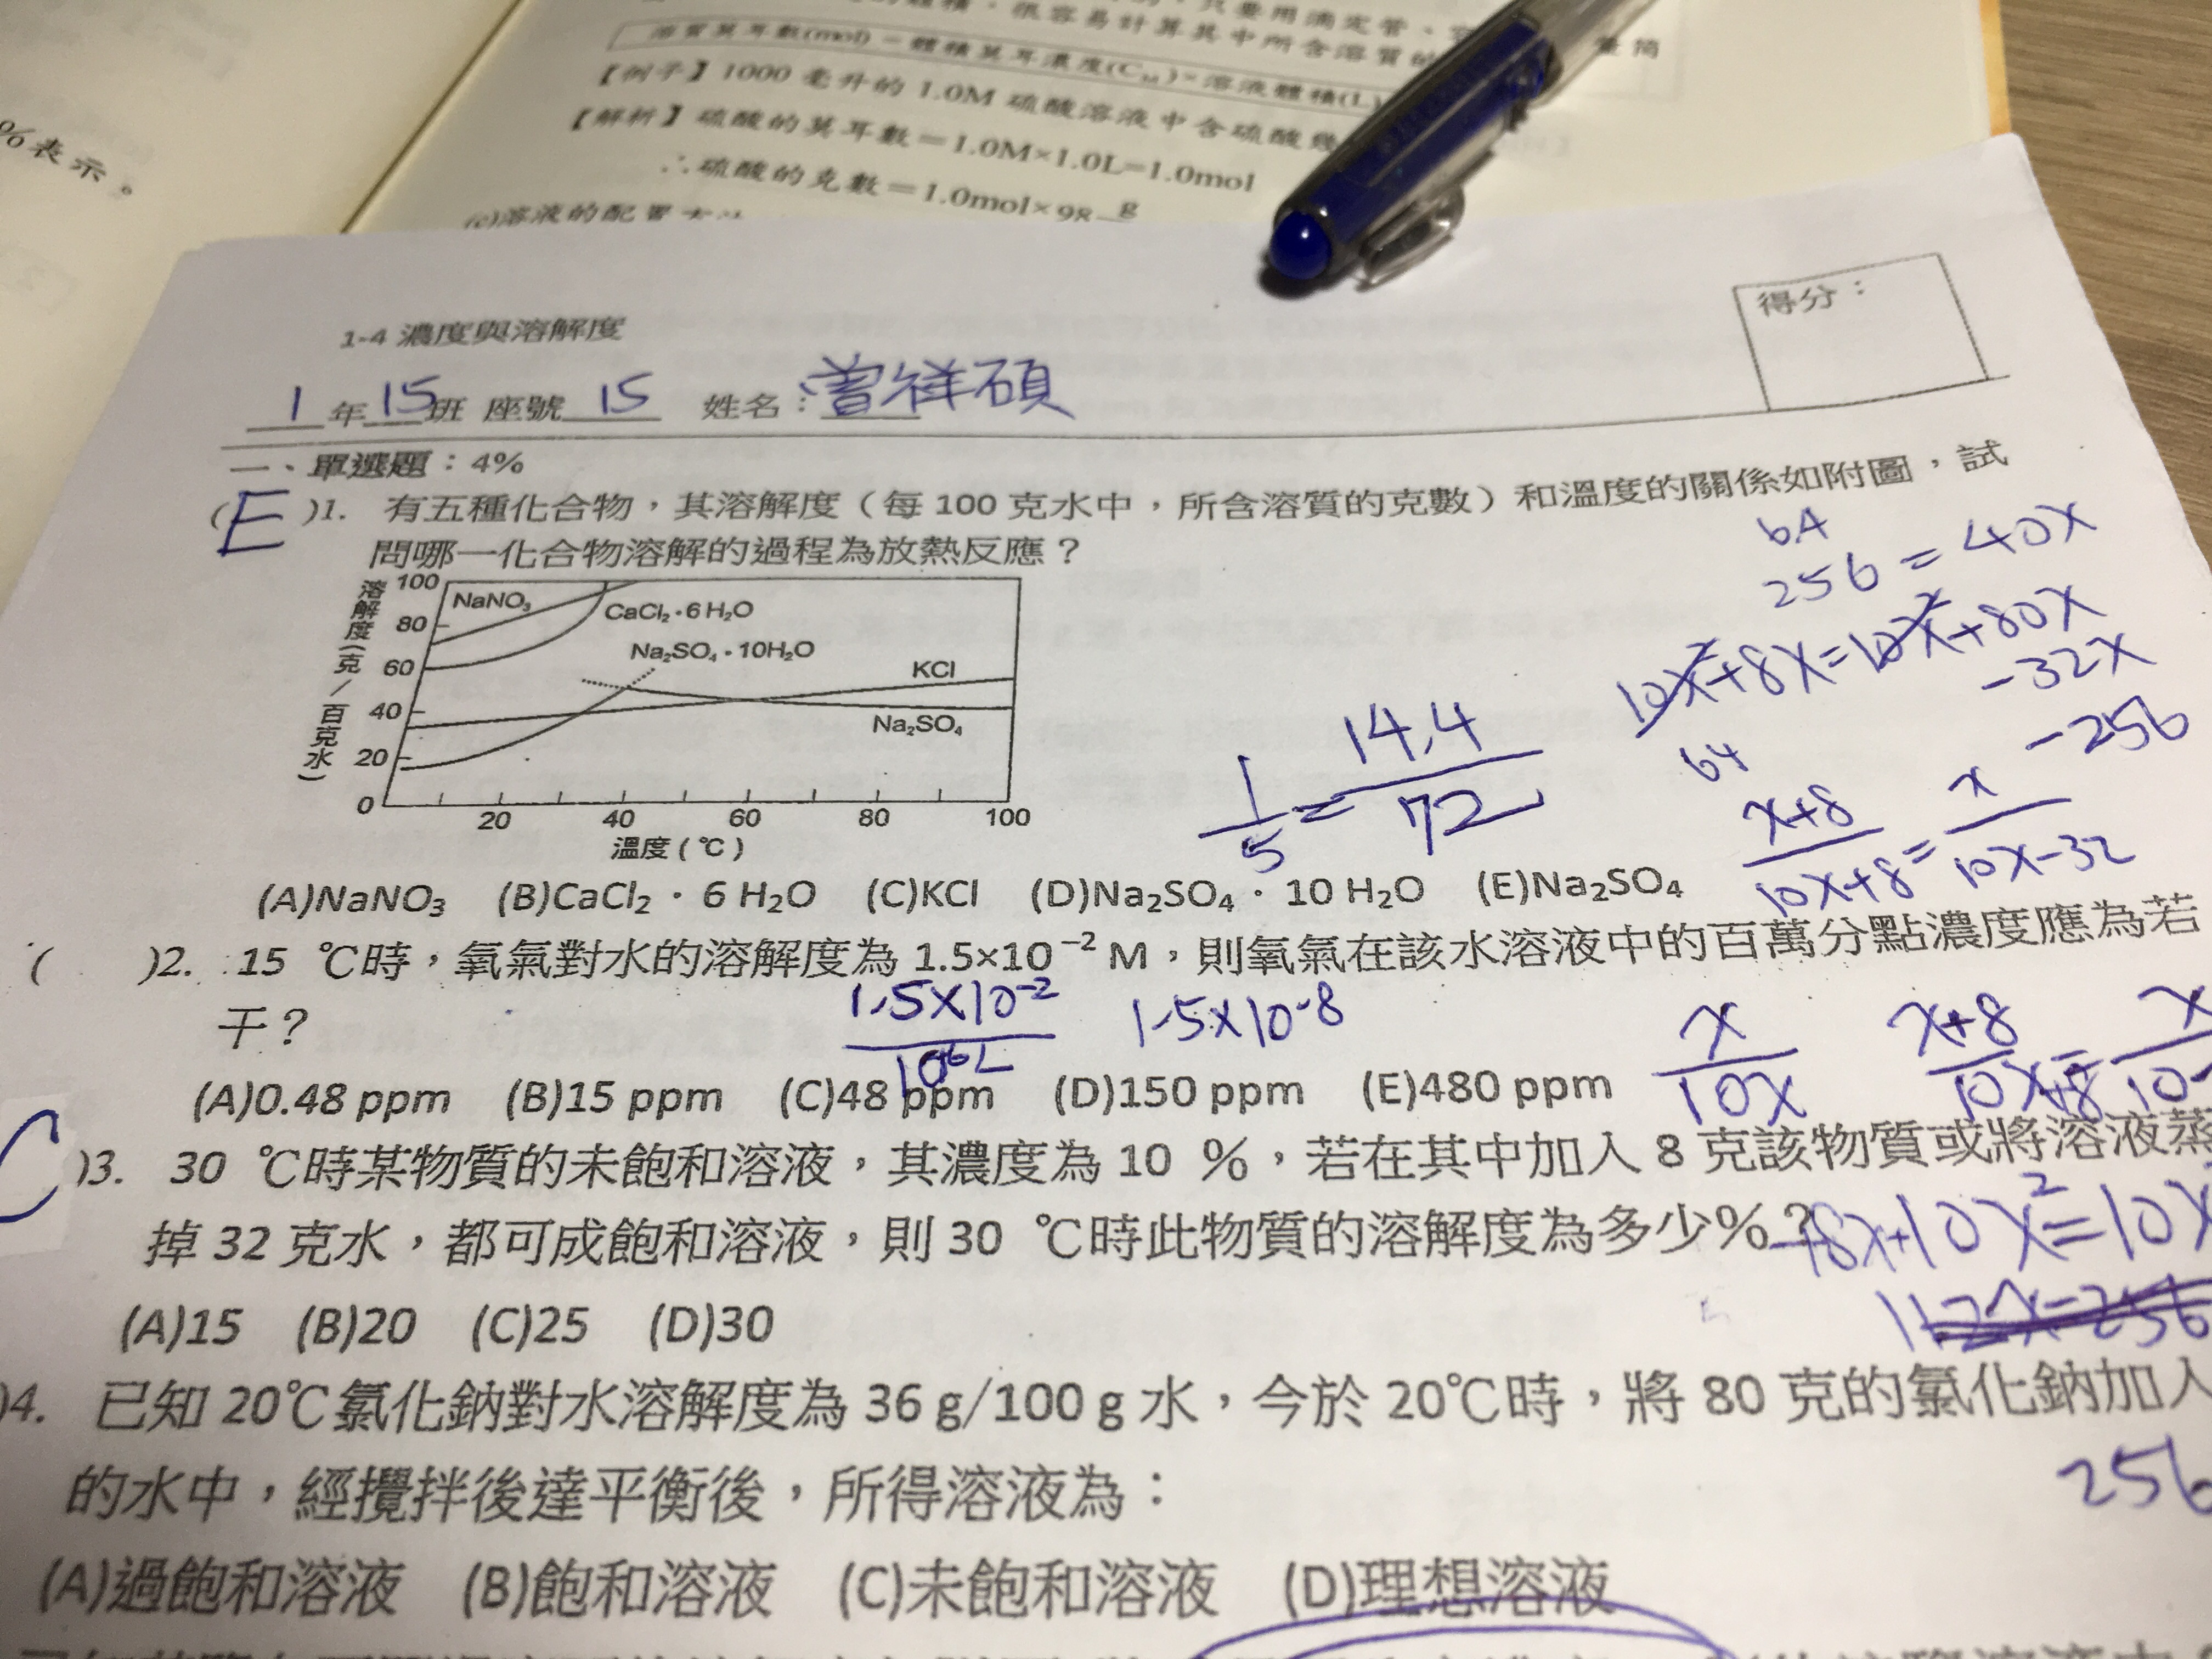 %表示。
溶質莫耳數(mol)=體積莫耳濃度(CM)×溶液體積(L)
【例子】1000 毫升的 1.0M 硫酸溶液中含硫酸
【解析】硫酸的莫耳數=1.0M×1.0L=1.0mol
∴硫酸的克數=1.0mol×98 g
(c)溶液的配置
1-4 濃度與溶解度
得分：
1 年 15 班 座號 15 姓名：曾祥碩
一、單選題：4%
(E)1. 有五種化合物，其溶解度（每 100 克水中，所含溶質的克數）和溫度的關係如附圖，試
問哪一化合物溶解的過程為放熱反應？
溶解度（克／百克水）
100
80
60
40
20
0
NaNO₃
CaCl₂·6H₂O
Na₂SO₄·10H₂O
KCl
Na₂SO₄
20 40 60 80 100
溫度(℃)
6.4
256=40x
10x²+8x=10x²+80x
-32x
-256
64
1/5=14.4/72
x+8/10x+8=x/10x-32
(A)NaNO₃ (B)CaCl₂·6 H₂O (C)KCl (D)Na₂SO₄·10 H₂O (E)Na₂SO₄
( )2. 15 ℃時，氧氣對水的溶解度為 1.5×10⁻² M，則氧氣在該水溶液中的百萬分點濃度應為若
干？
1.5×10⁻² 1.5×10⁻⁸
x/10x x+8/10x+8=x/10
(A)0.48 ppm (B)15 ppm (C)48 ppm (D)150 ppm (E)480 ppm
C)3. 30 ℃時某物質的未飽和溶液，其濃度為 10 %，若在其中加入 8 克該物質或將溶液蒸
掉 32 克水，都可成飽和溶液，則 30 ℃時此物質的溶解度為多少%？
8x+10x²=10x
(A)15 (B)20 (C)25 (D)30
)4. 已知 20℃氯化鈉對水溶解度為 36 g/100 g 水，今於 20℃時，將 80 克的氯化鈉加入
的水中，經攪拌後達平衡後，所得溶液為：
256
(A)過飽和溶液 (B)飽和溶液 (C)未飽和溶液 (D)理想溶液